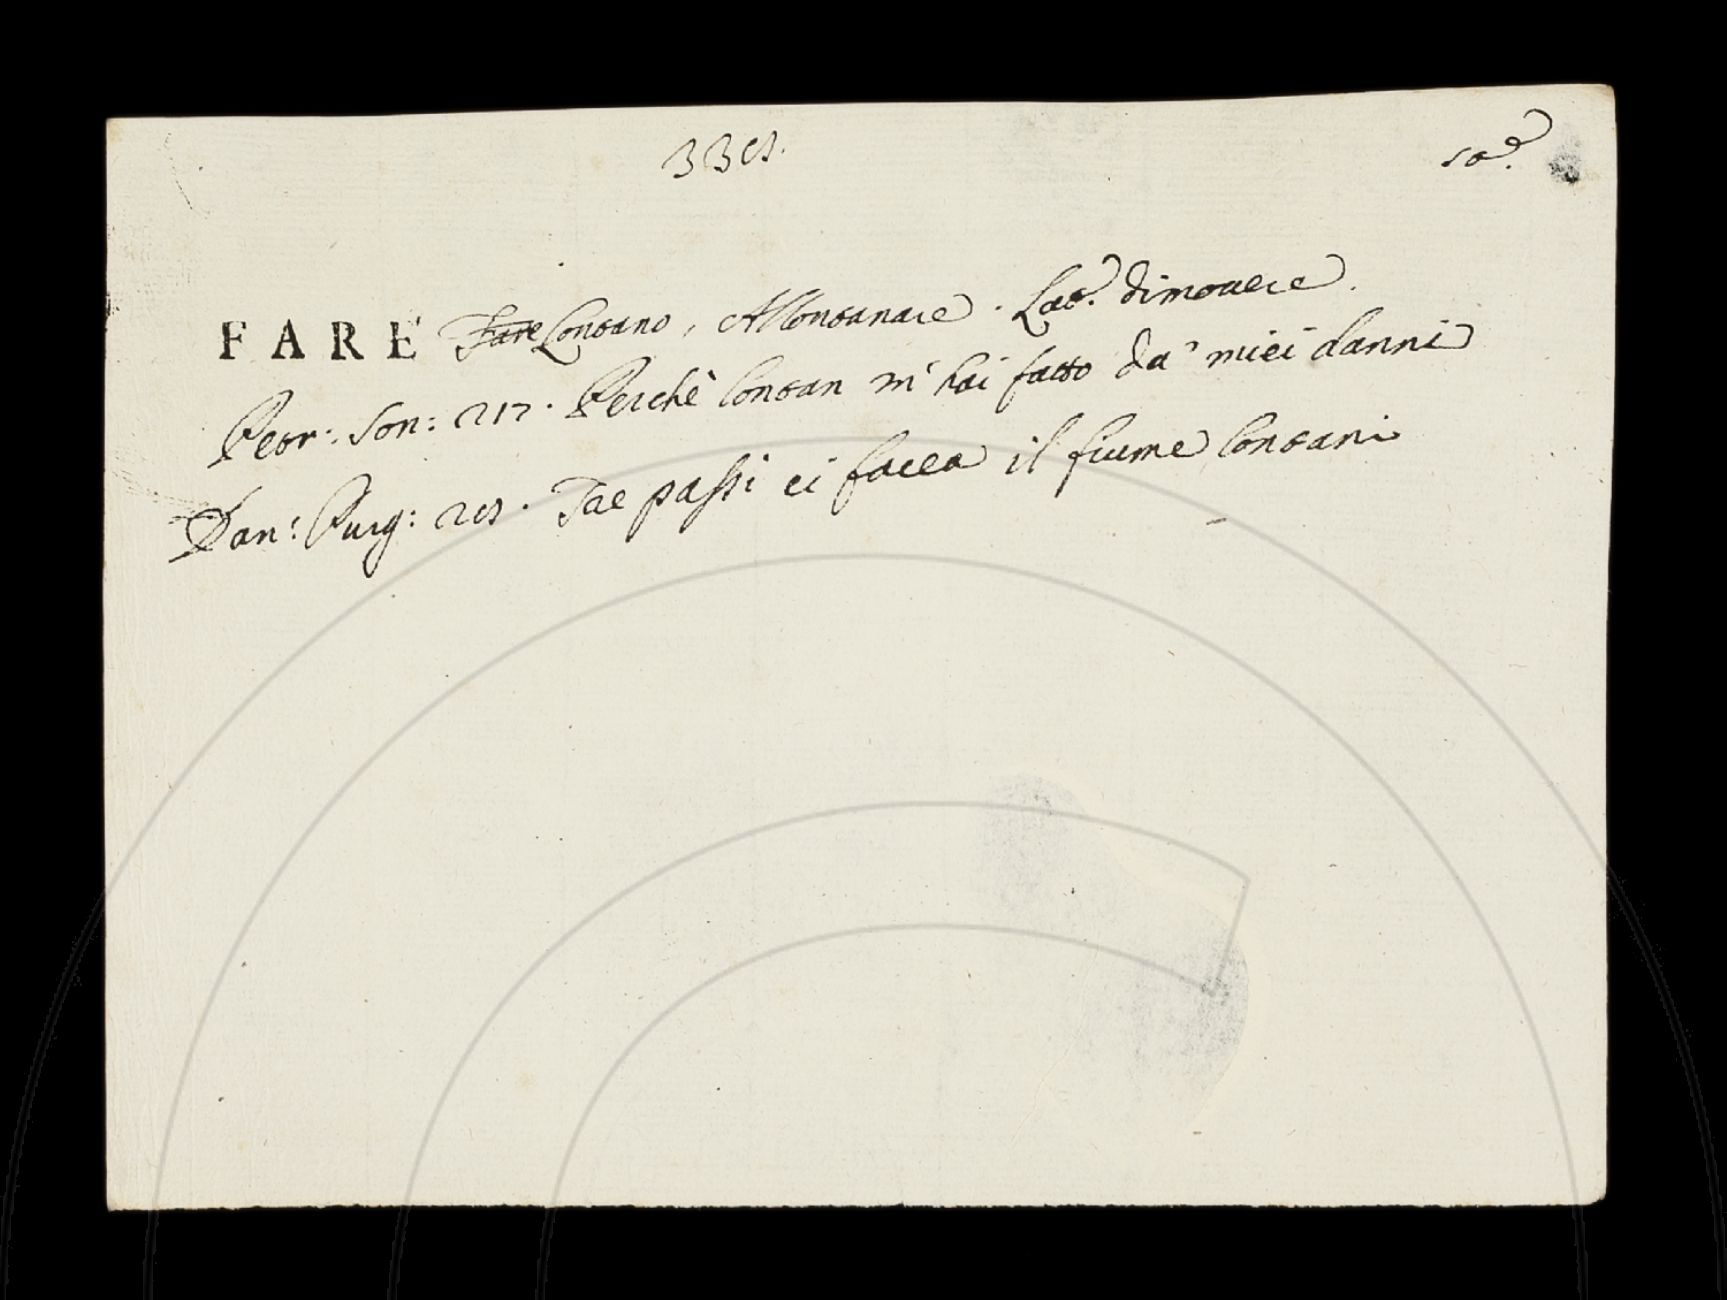 338.
FARE Fare Lontano, Allontanare. Lat. dimovere.
Petr. Son: 217. Perchè lontan m'hai fatto da' miei danni
Dan: Purg: 28. Tre passi ci facea il fiume lontani